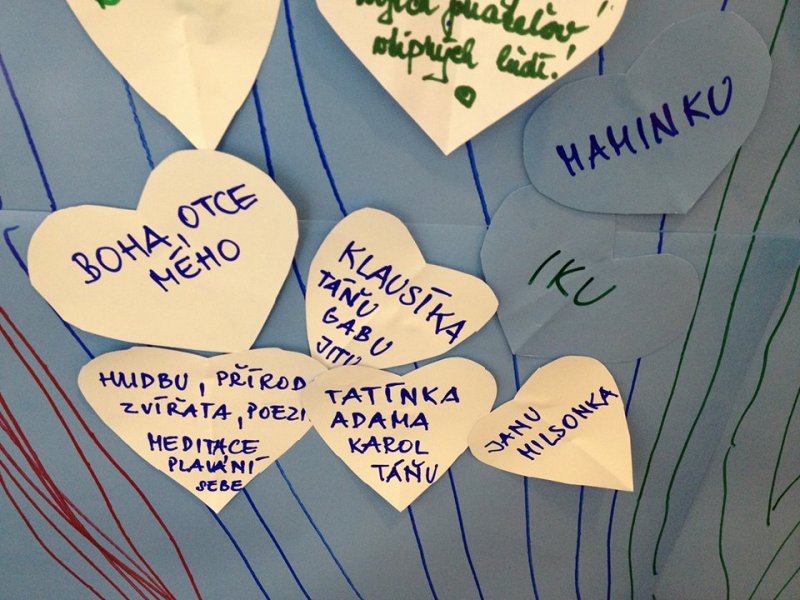 vtipných lidí!
MAMINKU
BOHA, OTCE
MÉHO
KLAUSÍKA
TÁŇU
GABU
JITU
IKU
HUDBU, PŘÍROD
ZVÍŘATA, POEZI
MEDITACE
PLAVÁNÍ
SEBE
TATÍNKA
ADAMA
KAROL
TÁŇU
JANU
MILSONKA